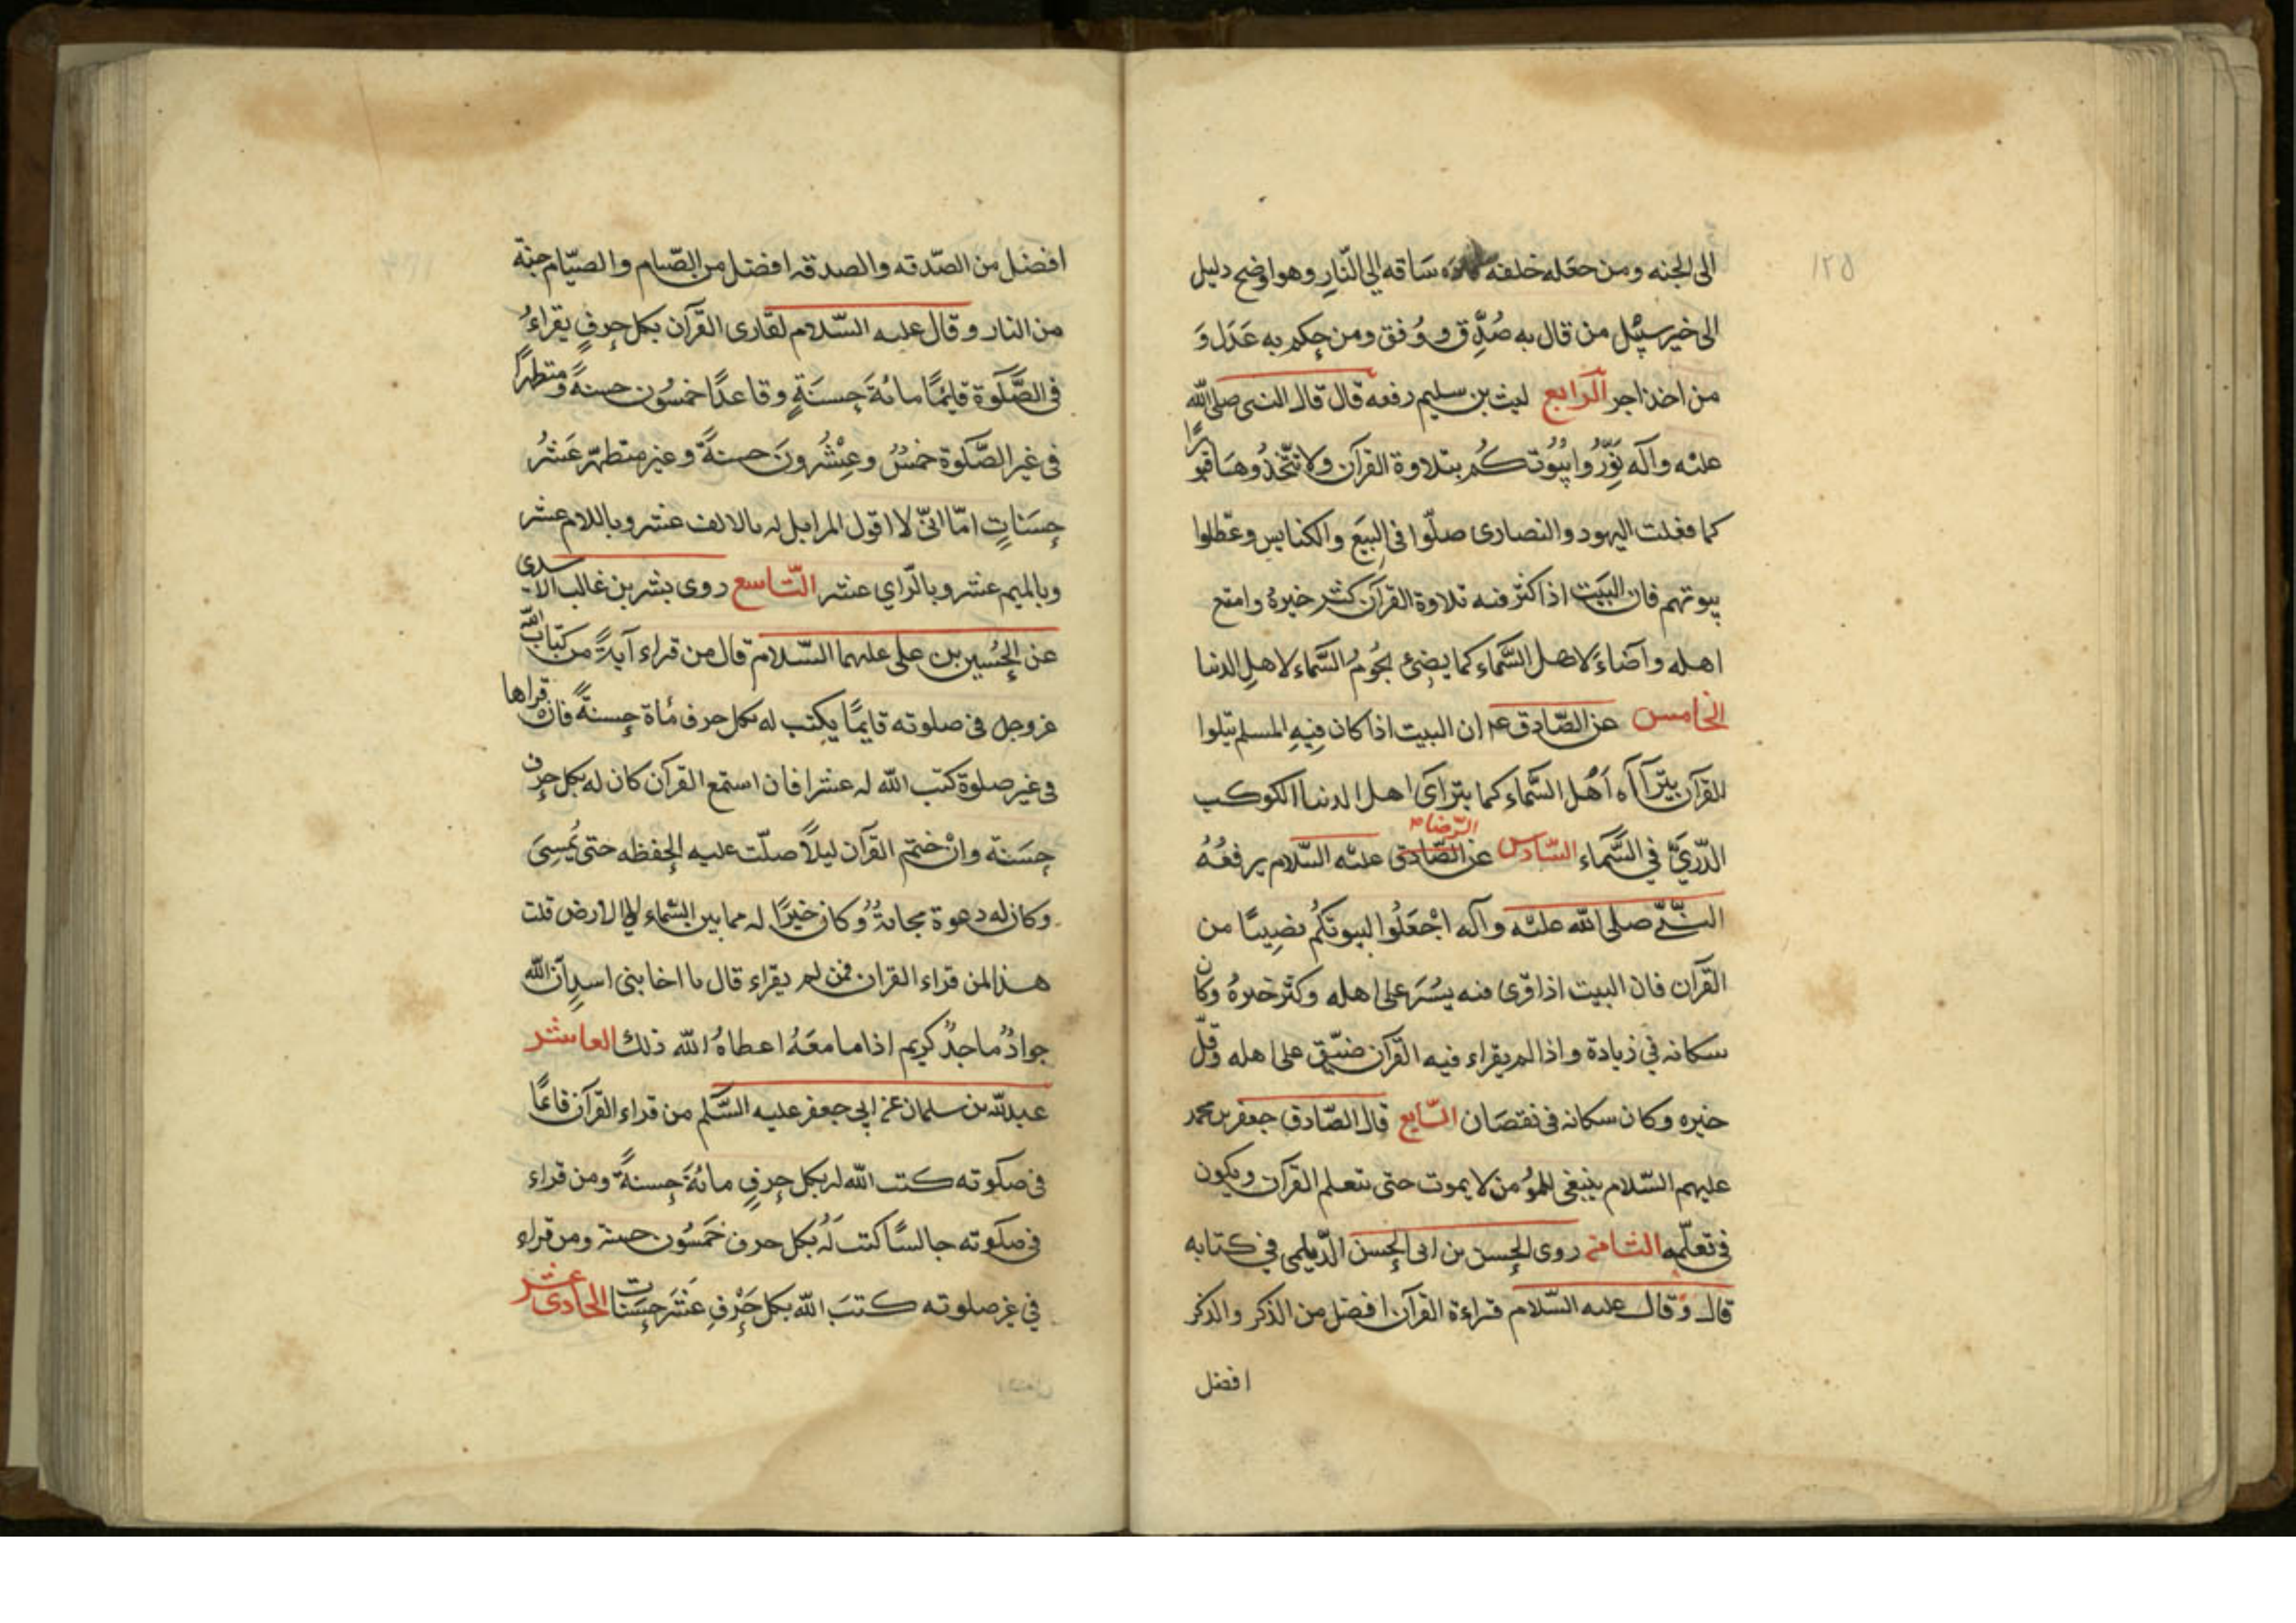 ١٢٥
الى الجنه ومن جعله خلفه ساقه الى النّارِ وهو اوضح دليل
الى خير سبيْل من قال به صُدِّق ووُفق ومن حكم به عَدَل وَ
من اخذ اجر الرابع ليث بن سليم رفعه قال قال النبى صلى الله
عليْه وآله نَوِّرُوا بيُوُتكُم بتلاوة القرآن ولا تتّخذُوهَا قبورًا
كما فعلت اليهود والنصارى صلّوا فى البِيَع والكنايس وعطّلوا
بيوتهم فان البَيَت اذا كثر فيه تلاوة القرآن كثر خيرهُ وامتع
اهله وآضاءَ لاهل السَّماء كما يضِئ نجُومُ السَّماء لاهلِ الدنيا
الخامس عن الصّادق ع ان البيت اذا كان فِيهِ المسلم يتلوا
القرآن يتَرآآه اَهْل السَّماء كما يترآى اهل الدنيا الكوكب
الدّريَّ في السَّماء السّادس عن الصّادق عليْه السّلام يرفعُهُ
الرّضا ع
النبّى صلى الله عليْه وآله اجْعَلُوا لبيوتكُم نصِيبًا من
القرآن فان البيت اذا قرى فيه يسُرَ على اهله وكثر خيرهُ وكان
سكانه في زيادة واذا لم يقراء فيه القرآن ضيّق على اهله وقلّ
خيره وكان سكانه فى نقصَان السّابع قال الصّادق جعفر بن محمد
عليهم السّلام ينبغى للمؤُمن لا يموت حتى يتعلم القرآن ويكون
فى تعلّمه الثامن روى الحسن بن ابى الحسن الدّيلمى في كتابه
قال وَقال عليه السّلام قراءة القرآن افضل من الذكر والذكر
افضل
افضَل من الصّدقه والصدقه افضل من الصّيام والصيّام جنة
من النار وقال عليه السّلام لقارى القرآن بكل حرفٍ يقراءُ
فى الصَّلَوة قايمًا مائةَ حِسنَةٍ وقاعدًا خمسُون حسنةً ومتطهرًا
فى غير الصَّلوة خمسُ وعِشْرُونَ حسنةً وغير متطهّر عَشرُ
حِسَناتٍ امّا انىّ لا اقول المر ابل له بالالف عشر وباللام عشر
وبالميم عشر وبالّراي عشر التّاسع روى بشر بن غالب الاسدى
عن الحُسين بن على عليهما السّلام قال من قراء آيةً من كتاب الله
عزوجل فى صلوته قايمًا يكتب له بكل حرف مأة حِسنةً فان قراها
فى غير صلوة كتب الله له عشرا فان استمع القرآن كان له بكل حرف
حِسَنة وانْ ختم القرآن ليلاً صلّت عليه الحفظه حتى يُمسِىَ
وكان له دعوة مجابةُ وكان خيرًا له مما بين السّماء الى الارض قلت
هذا لمن قراء القران فمن لم يقراء قال يا اخا بنى اسدِ انّ الله
جوادُ ماجدٌ كريم اذا ما معَهُ اعطاهُ الله ذلك العاشر
عبدالله بن سلمان عن ابي جعفر عليه السَّلم من قراء القرآن قائمًا
فى صلوته كتب الله له بكل حرفٍ مائةَ حِسنةً ومن قراء
فى صلوته جالسًا كتب لَهُ بكل حرف خَمسُون حسنة ومن قراء
في غير صلوته كتبَ الله بكل حَرْفِ عَشَرَ حِسَنات الحادى عشر